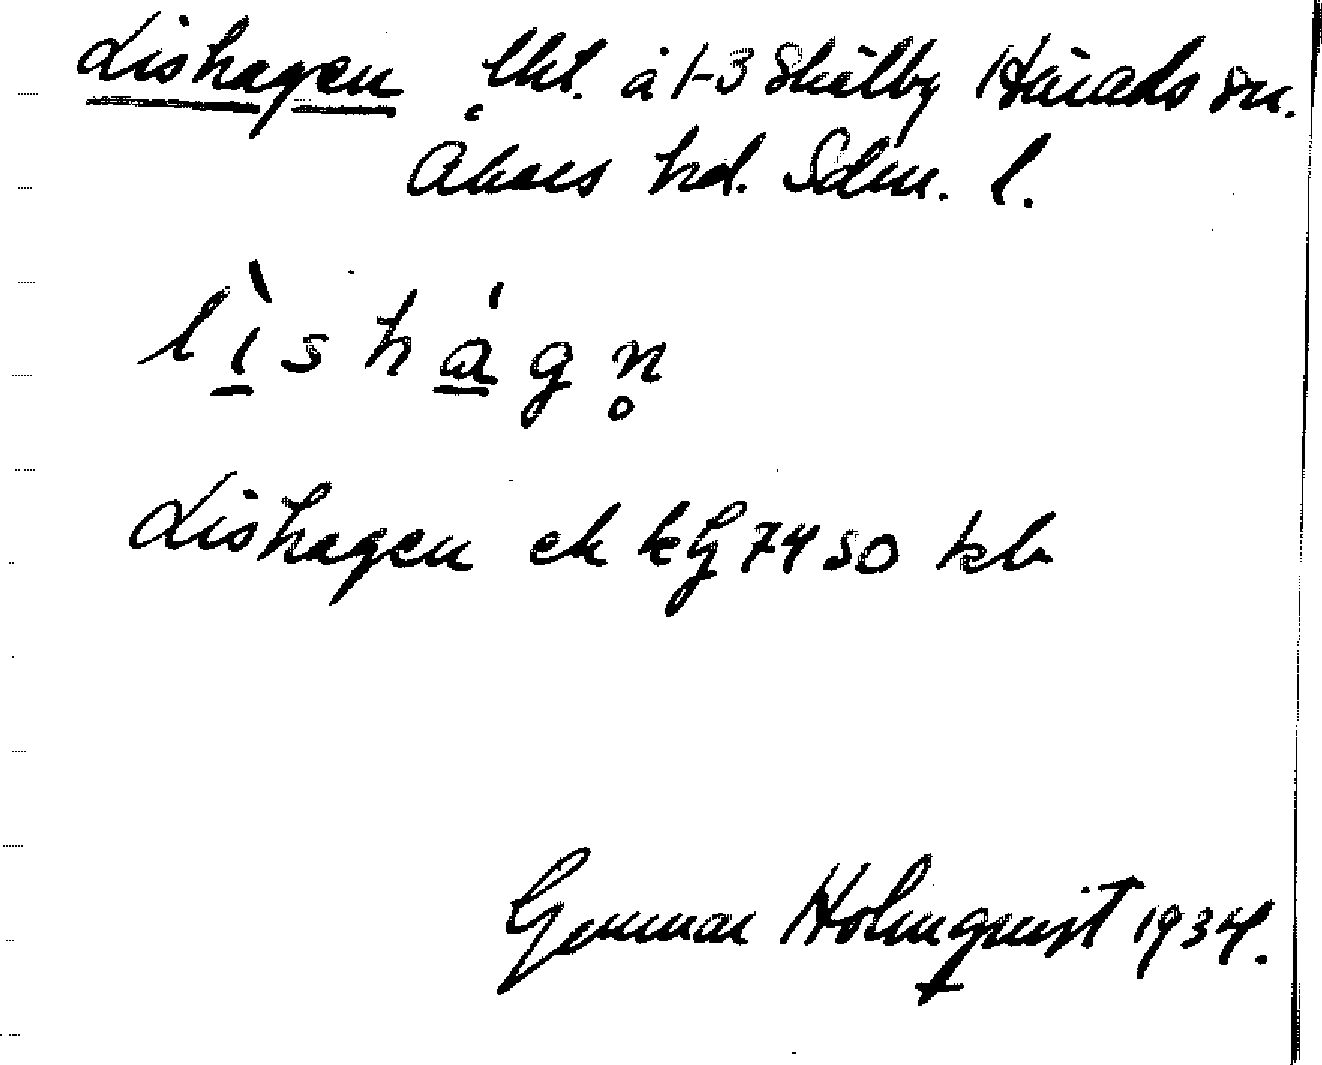 Lishagen lht. å 1-3 Skälby Härads sn.
Åkers hd. Sdm. l.
lìshágn̥
Lishagen ek kG 7450 kb
Gunnar Holmquist 1934.